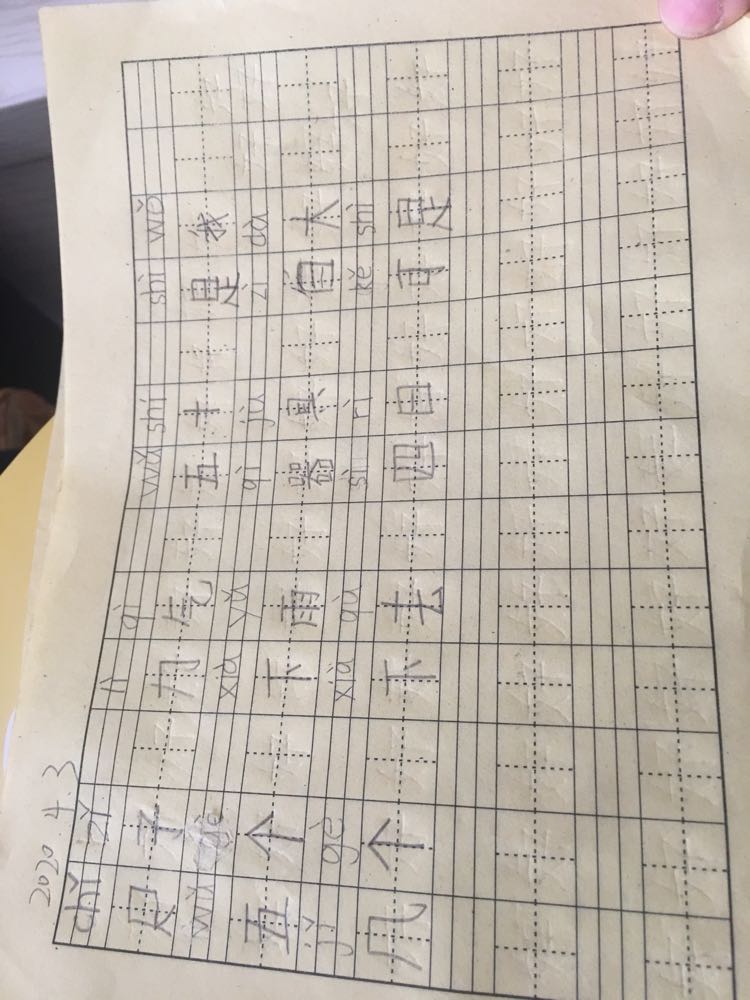 2020.4.3
chǐ zǐ lì qì wǔ shí shì wǒ
尺子 力气 五十 是我
wǔ gè xià yǔ qì jù zì dà
五个 下雨 器具 自大
jǐ gè xià qù sì rì kě shì
几个 下去 四日 可是